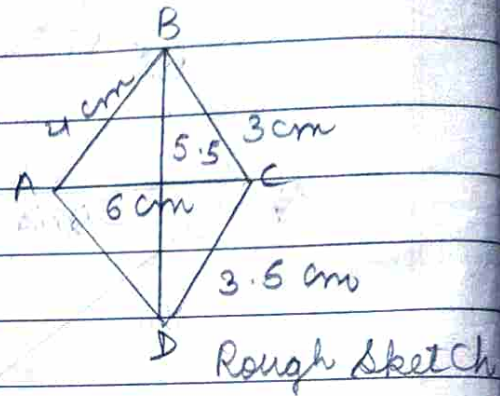 B
4 cm
3 cm
5.5
A
C
6 cm
3.5 cm
D
Rough Sketch